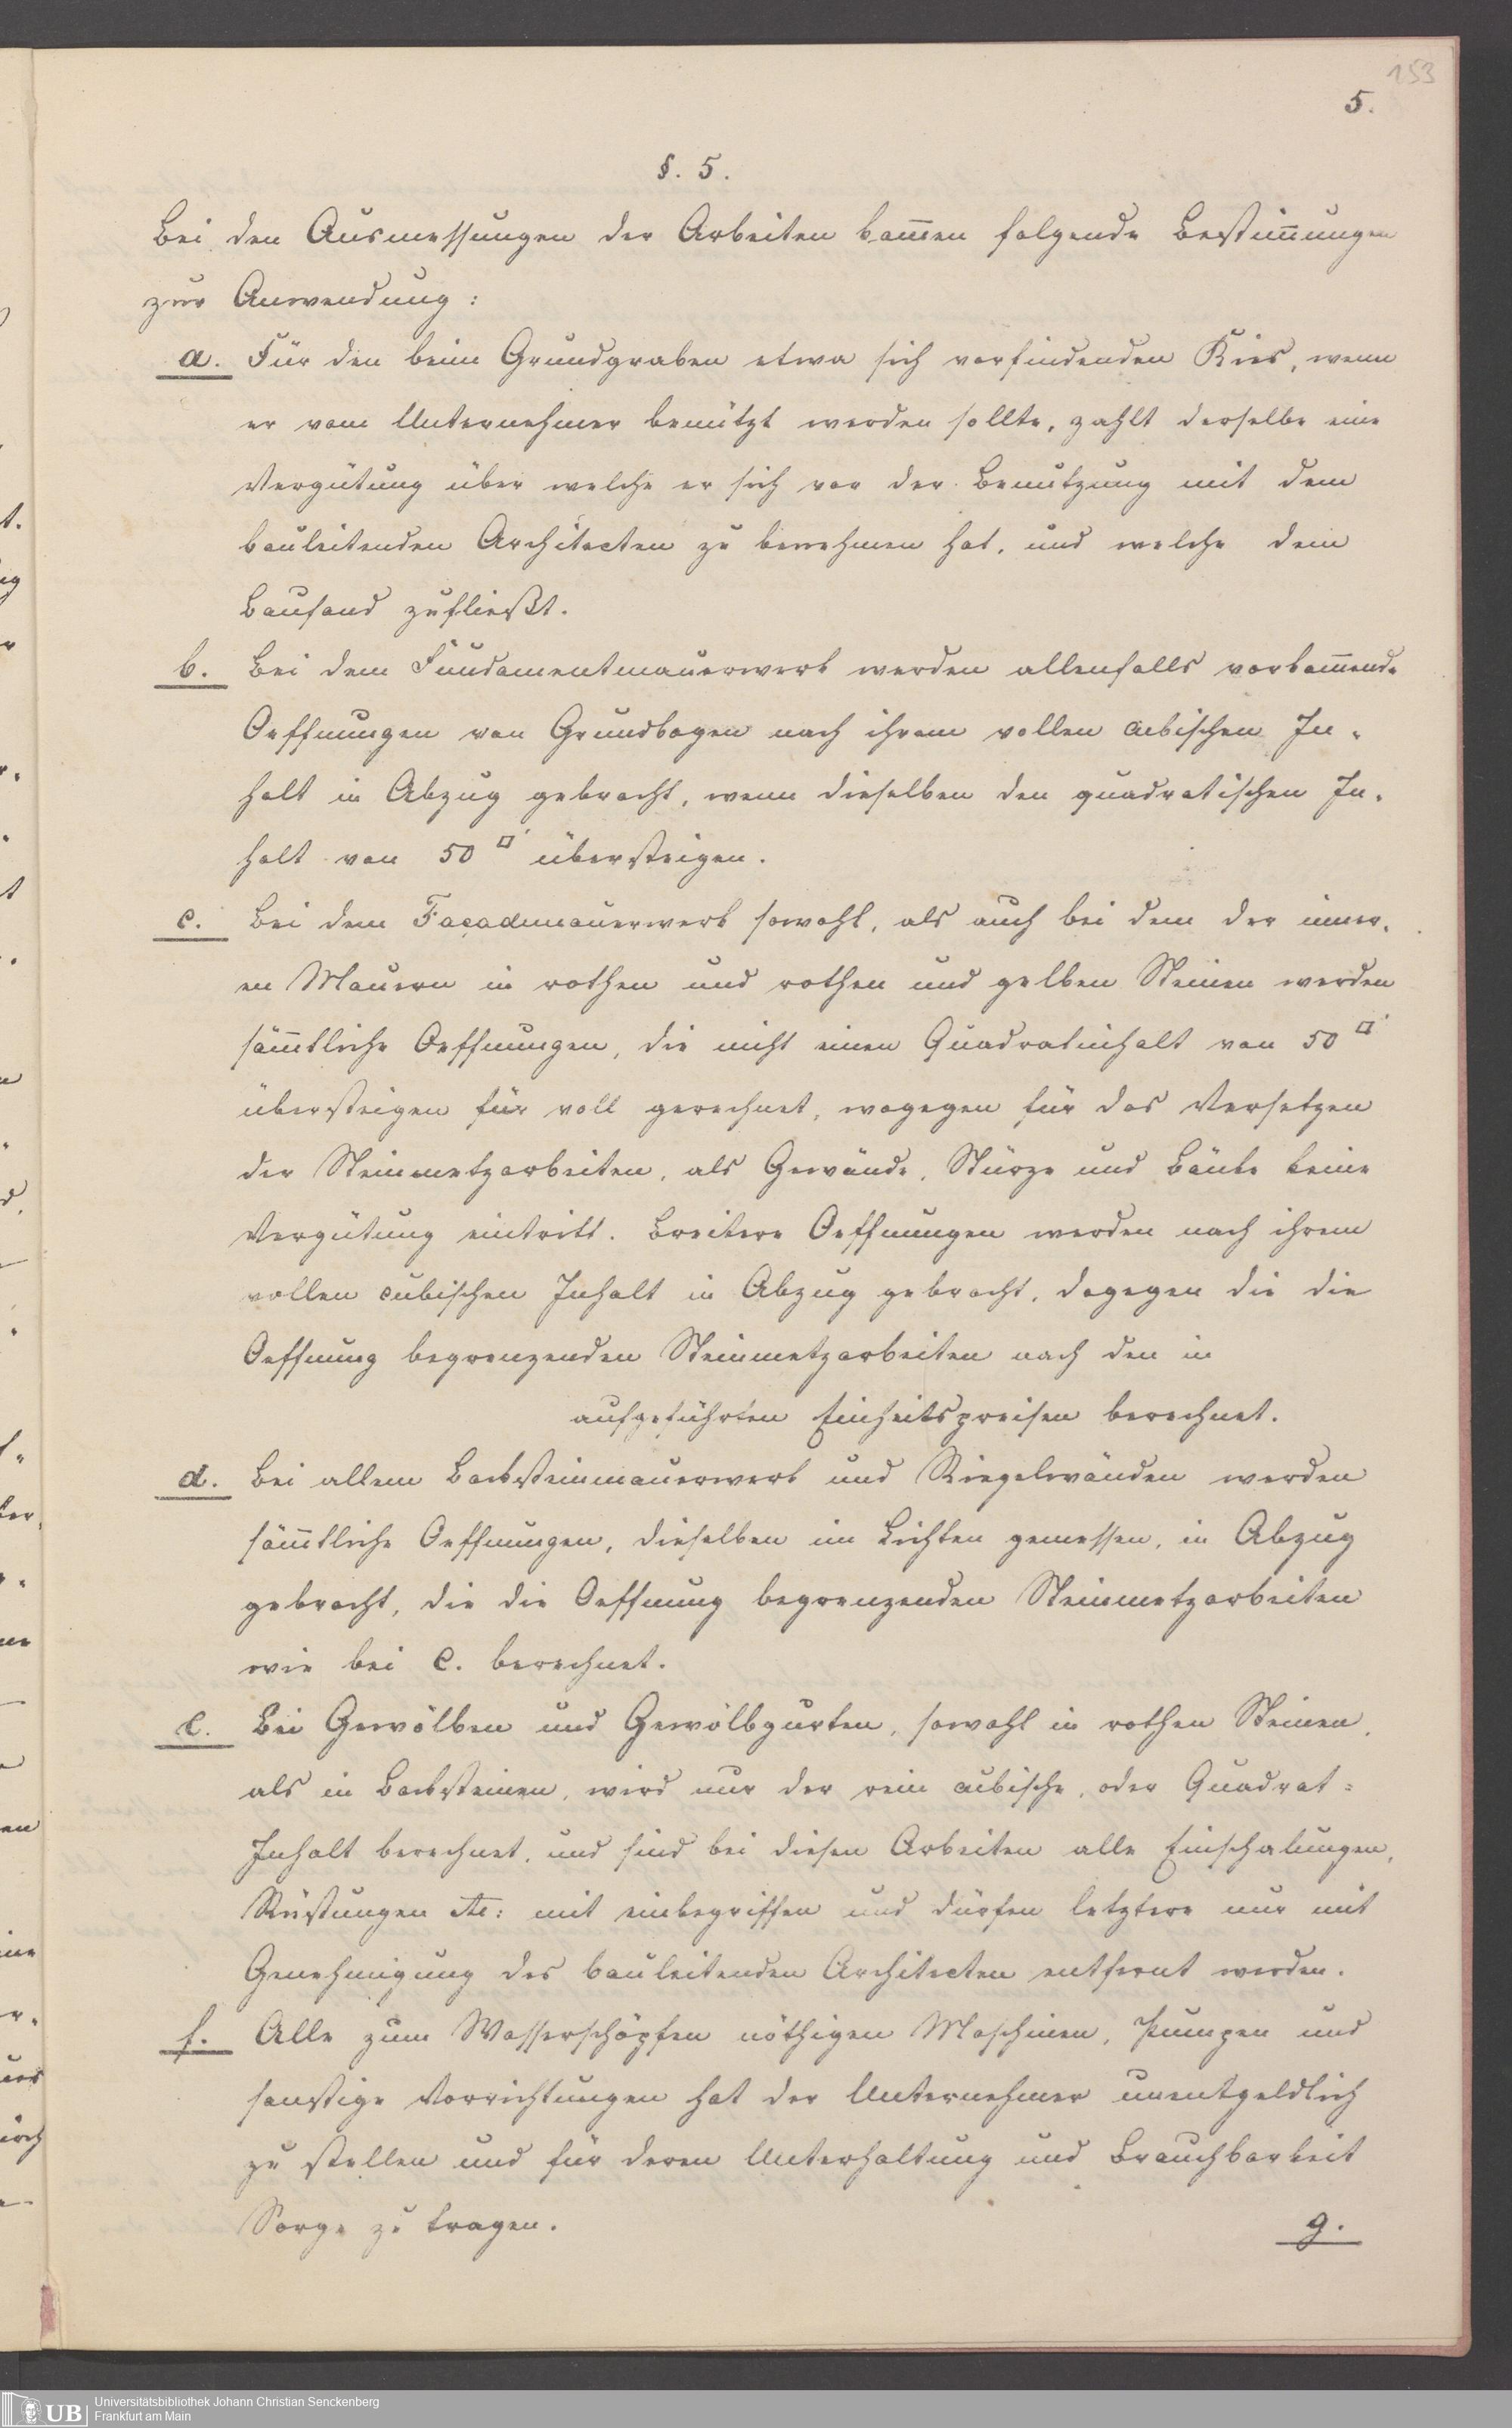 153
5.
§. 5.
Bei den Ausmessungen der Arbeiten kom̅en folgende Bestim̅ungen
zur Anwendung:
a. Für den beim Grundgraben etwa sich vorfindenden Kies, wenn
er vom Unternehmer benützt werden sollte, zahlt derselbe eine
Vergütung über welche er sich vor der Benutzung mit dem
bauleitenden Architecten zu benehmen hat, und welche dem
Baufond zufließt.
b. Bei dem Fundamentmauerwerk werden allenfalls vorkom̅ende
Oeffnungen von Grundbogen nach ihrem vollen cubischen In-
halt in Abzug gebracht, wenn dieselben den quadratischen In-
halt von 50 □' übersteigen.
c. Bei dem Façadenmauerwerk sowohl, als auch bei dem der inner-
en Mauern in rothen und rothen und gelben Steinen werden
säm̅tliche Oeffnungen, die nicht einen Quadratinhalt von 50 □'
übersteigen für voll gerechnet, wogegen für das Versetzen
der Steinmetzarbeiten, als Gewände, Stürze und Bänke keine
Vergütung eintritt. Breitere Oeffnungen werden nach ihrem
vollen cubischen Inhalt in Abzug gebracht, dagegen die die
Oeffnung begrenzenden Steinmetzarbeiten nach den in
aufgeführten Einheitspreisen berechnet.
d. Bei allem Backsteinmauerwerk und Riegelwänden werden
säm̅tliche Oeffnungen, dieselben im Lichten gemessen, in Abzug
gebracht, die die Oeffnung begrenzenden Steinmetzarbeiten
wie bei C. berechnet.
e. Bei Gewölben und Gewölbgurten, sowohl in rothen Steinen,
als in Backsteinen, wird nur der rein cubische, oder Quadrat-
Inhalt berechnet, und sind bei diesen Arbeiten alle Einschalungen,
Rüstungen etc: mit einbegriffen und dürfen letztere nur mit
Genehmigung des bauleitenden Architecten entfernt werden.
f. Alle zum Wasserschöpfen nöthigen Maschinen, Pumpen und
sonstige Vorrichtungen hat der Unternehmer unentgeldlich
zu stellen und für deren Unterhaltung und Brauchbarkeit
Sorge zu tragen.
g.
UB Universitätsbibliothek Johann Christian Senckenberg
Frankfurt am Main